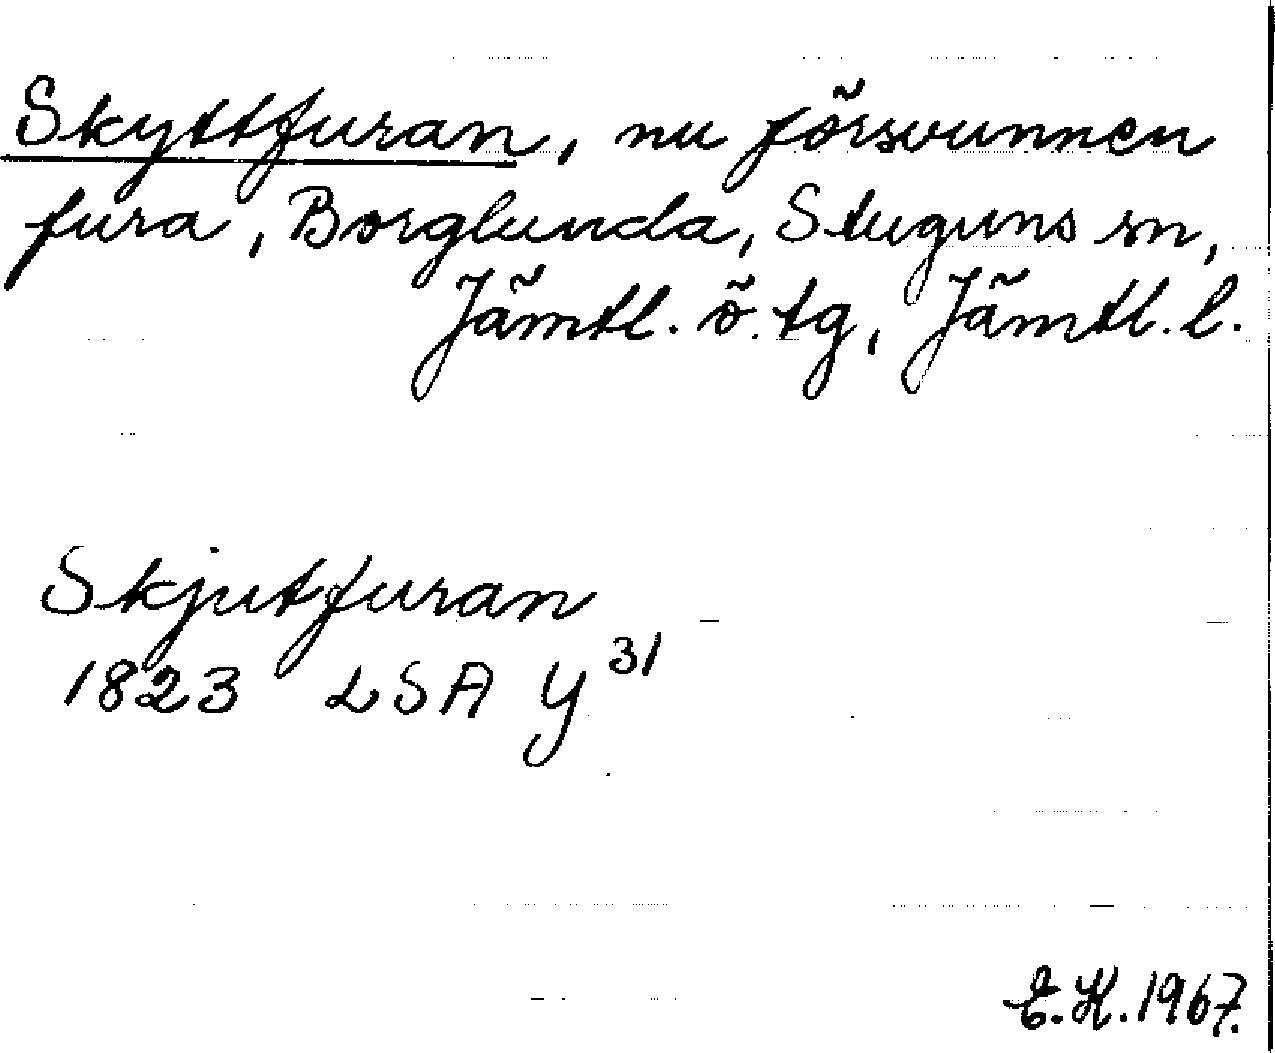 Skyttfuran, nu försvunnen
fura, Borglunda, Stuguns sn,
Jämtl. ö. tg, Jämtl. l.
Skjutfuran
1823 LSA Y 31
E.H. 1967.